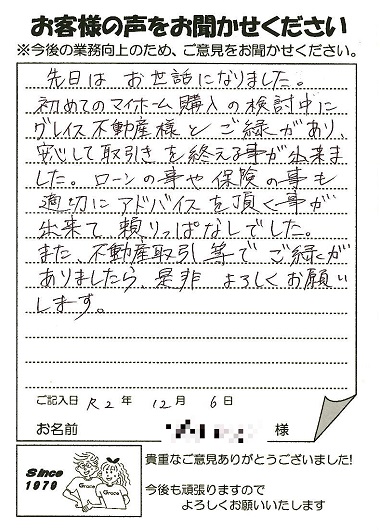 お客様の声をお聞かせください
※今後の業務向上のため、ご意見をお聞かせください。
先日は お世話になりました。
初めてのマイホーム購入の検討中に
グレイス不動産様とご縁があり、
安心して取引きを終える事が出来ま
した。ローンの事や保険の事も
適切にアドバイスを頂く事が
出来て頼りっぱなしでした。
また、不動産取引等でご縁が
ありましたら、是非よろしくお願い
します。
ご記入日 R2 年 12 月 6 日
お名前 様
Since
1979
Grace
Grace
貴重なご意見ありがとうございました!
今後も頑張りますので
よろしくお願いいたします